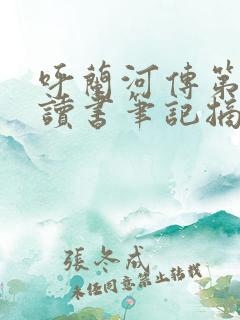 呼蘭河傳第
讀書筆記摘
張冬成
未经同意禁止转载